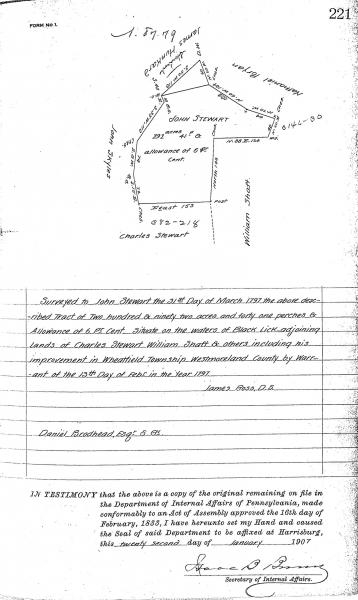 221
FORM NO 1.
Nathaniel Bryan
JOHN STEWART
292 acres 41 ps &
allowance of 6 Pr
Cent.
John Skyles
William Shatt
Post
Charles Stewart
Surveyed to John Stewart the 31st Day of March 1797 the above des-
cribed Tract of Two hundred & ninety two acres and forty one perches &
Allowance of 6 Pr Cent. Situate on the waters of Black Lick adjoining
Lands of Charles Stewart William Shatt & others including his
improvement in Wheatfield Township Westmoreland County by Warr-
ant of the 13th Day of Febr in the Year 1797
James Ross, D.S.
Daniel Brodhead, Esqr S.G.
IN TESTIMONY that the above is a copy of the original remaining on file in
the Department of Internal Affairs of Pennsylvania, made
conformably to an Act of Assembly approved the 16th day of
February, 1833, I have hereunto set my Hand and caused
the Seal of said Department to be affixed at Harrisburg,
this twenty second day of January 1907
Isaac B. Brown
Secretary of Internal Affairs.